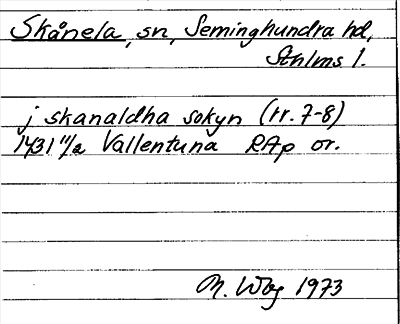 Skånela, sn, Seminghundra hd,
Sthlms l.
j skanaldha sokyn (rr. 7-8)
1431 11/2 Vallentuna RAp or.
M. Wbg 1973